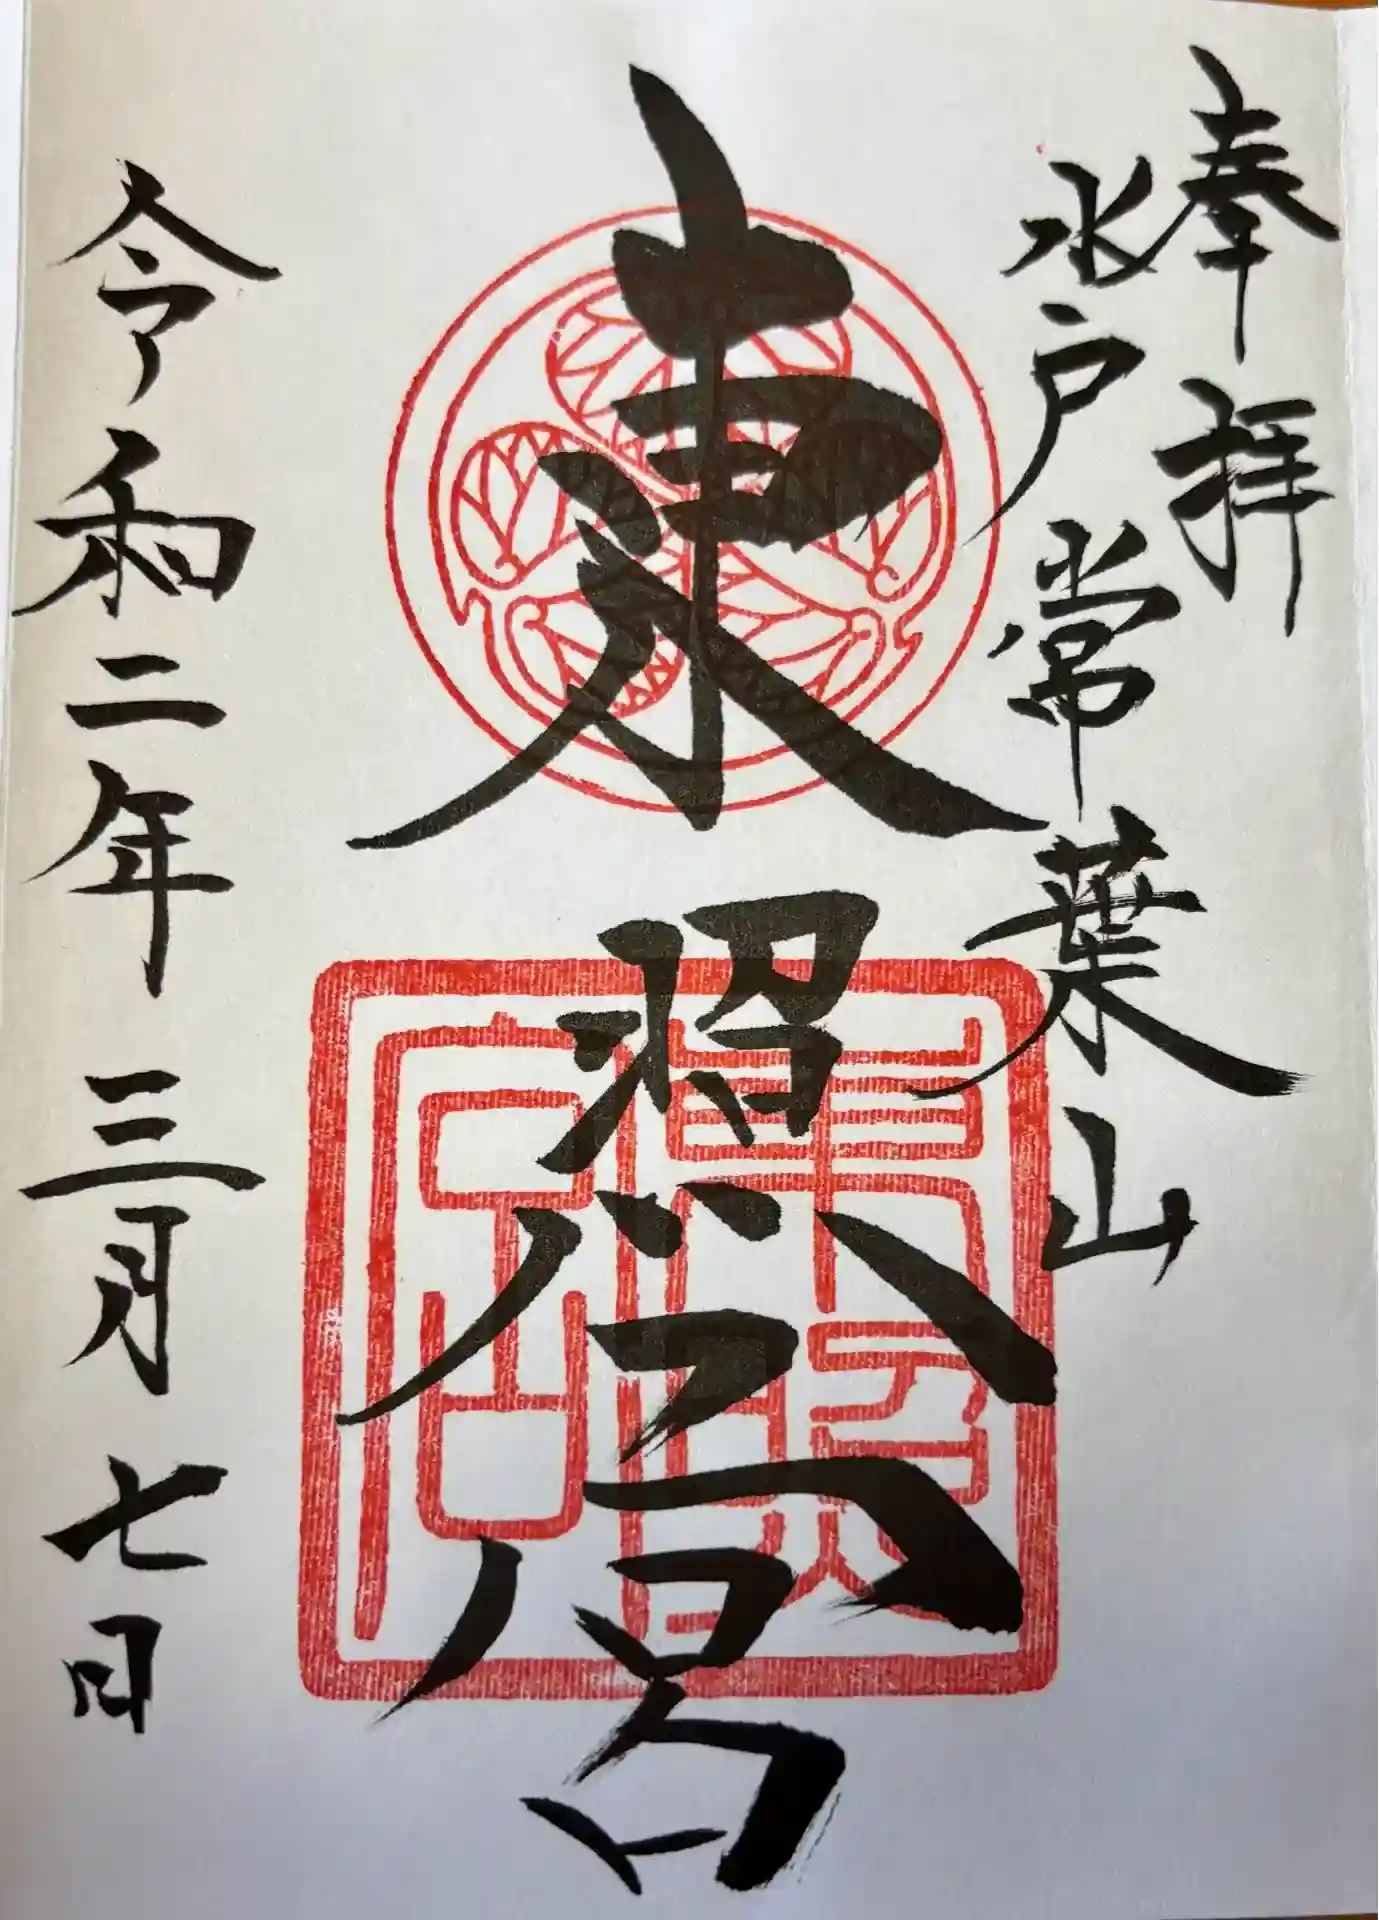 奉拝
水戸常葉山
東照宮
令和二年三月七日
東照宮